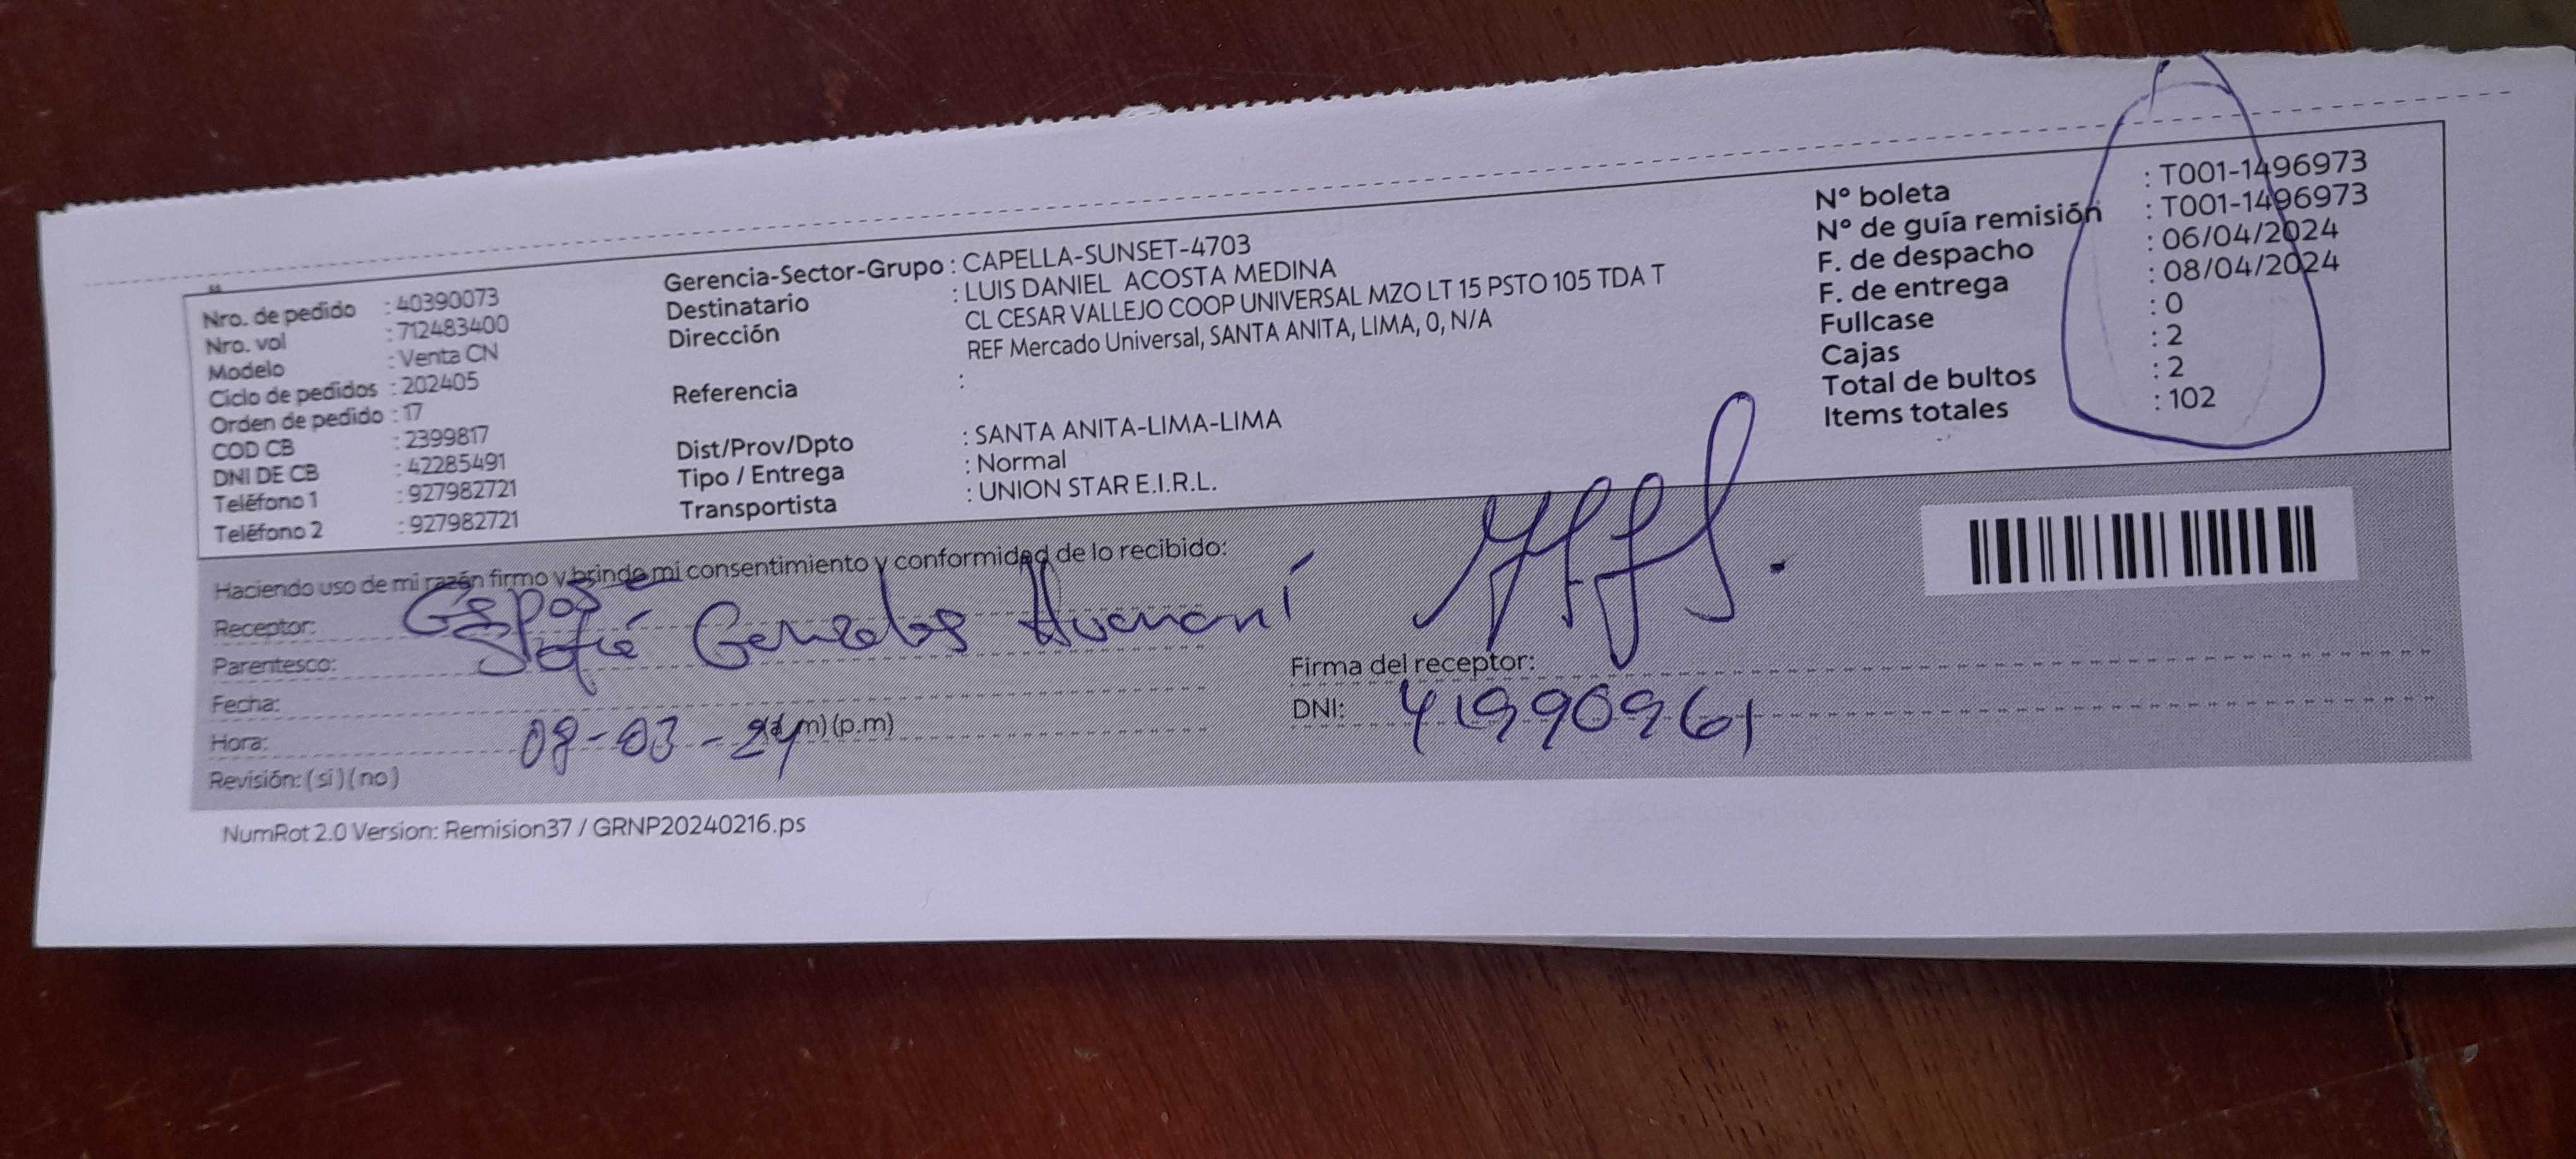 Nro. de pedido : 40390073
Nro. vol : 712483400
Modelo : Venta CN
Ciclo de pedidos : 202405
Orden de pedido : 17
COD CB : 2399817
DNI DE CB : 42285491
Teléfono 1 : 927982721
Teléfono 2 : 927982721
Gerencia-Sector-Grupo : CAPELLA-SUNSET-4703
Destinatario : LUIS DANIEL ACOSTA MEDINA
Dirección CL CESAR VALLEJO COOP UNIVERSAL MZO LT 15 PSTO 105 TDA T
REF Mercado Universal, SANTA ANITA, LIMA, 0, N/A
Referencia :
Dist/Prov/Dpto : SANTA ANITA-LIMA-LIMA
Tipo / Entrega : Normal
Transportista : UNION STAR E.I.R.L.
Nº boleta : T001-1496973
Nº de guía remisión : T001-1496973
F. de despacho : 06/04/2024
F. de entrega : 08/04/2024
Fullcase : 0
Cajas : 2
Total de bultos : 2
Items totales : 102
Haciendo uso de mi razón firmo y brindo mi consentimiento y conformidad de lo recibido:
Receptor:
Parentesco:
Fecha:
Hora: 08-03-24 (a.m) (p.m)
Revisión: ( si ) ( no )
Firma del receptor:
DNI: 41990961
NumRot 2.0 Version: Remision37 / GRNP20240216.ps